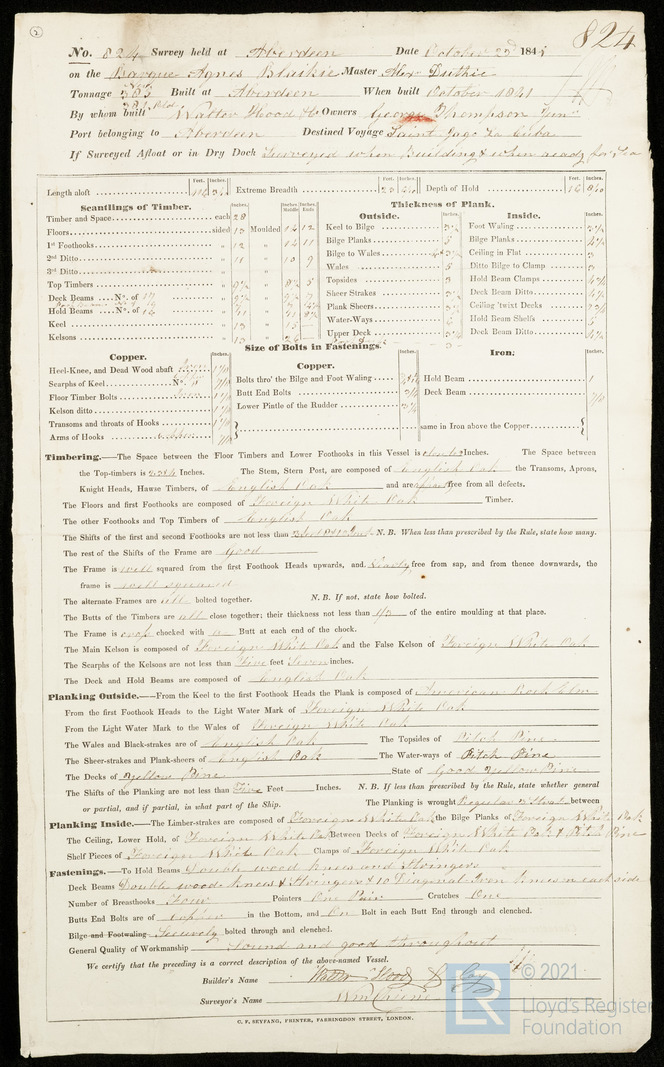 2
824
No. 824 Survey held at Aberdeen Date October 22d 184
on the Barque Agnes Blaikie Master Alex Duthie
Tonnage Built at Aberdeen When built October 1841
By whom built Walter Hood & Co Owners George Thompson Junr
Port belonging to Aberdeen Destined Voyage Saint Jago La Cuba
If Surveyed Afloat or in Dry Dock Surveyed when Building & when ready for Sea
Feet. Inches. Feet. Inches. Feet. Inches.
Length aloft Extreme Breadth Depth of Hold 16
Scantlings of Timber. Thickness of Plank.
Inches. Inches Middle Inches Ends Outside. Inches. Inside. Inches.
Timber and Space each 28 Keel to Bilge Foot Waling
Floors sided 13 Moulded 14 12 Bilge Planks 5 Bilge Planks
1st Foothooks " 12 " 14 11 Bilge to Wales Ceiling in Flat 3
2nd Ditto " 11 " 10 9 Wales 5 Ditto Bilge to Clamp 3
3rd Ditto " " Topsides 3 Hold Beam Clamps
Top Timbers " " Sheer Strakes Deck Beam Ditto
Deck Beams No. of " " Plank Sheers Ceiling 'twixt Decks
Hold Beams No. of " " Water-Ways Hold Beam Shelfs
Keel " 13 " 15 Upper Deck Deck Beam Ditto
Kelsons " 13 "
Size of Bolts in Fastenings.
Copper. Inches. Copper. Inches. Iron. Inches.
Heel-Knee, and Dead Wood abaft Bolts thro' the Bilge and Foot Waling Hold Beam 1
Scarphs of Keel No. Butt End Bolts Deck Beam
Floor Timber Bolts Lower Pintle of the Rudder
Kelson ditto
Transoms and throats of Hooks same in Iron above the Copper
Arms of Hooks
Timbering.—The Space between the Floor Timbers and Lower Foothooks in this Vessel is Inches. The Space between
the Top-timbers is Inches. The Stem, Stern Post, are composed of English Oak the Transoms, Aprons,
Knight Heads, Hawse Timbers, of English Oak and are free from all defects.
The Floors and first Foothooks are composed of Foreign White Oak Timber.
The other Foothooks and Top Timbers of English Oak
The Shifts of the first and second Foothooks are not less than N. B. When less than prescribed by the Rule, state how many.
The rest of the Shifts of the Frame are Good
The Frame is well squared from the first Foothook Heads upwards, and free from sap, and from thence downwards, the
frame is well squared
The alternate Frames are all bolted together. N. B. If not, state how bolted.
The Butts of the Timbers are all close together; their thickness not less than 1/3 of the entire moulding at that place.
The Frame is cross chocked with a Butt at each end of the chock.
The Main Kelson is composed of Foreign White Oak and the False Kelson of Foreign White Oak
The Scarphs of the Kelsons are not less than Five feet Seven inches.
The Deck and Hold Beams are composed of English Oak
Planking Outside.—From the Keel to the first Foothook Heads the Plank is composed of American Rock Elm
From the first Foothook Heads to the Light Water Mark of Foreign White Oak
From the Light Water Mark to the Wales of Foreign White Oak
The Wales and Black-strakes are of English Oak The Topsides of Pitch Pine
The Sheer-strakes and Plank-sheers of English Oak The Water-ways of Pitch Pine
The Decks of Yellow Pine State of Good Yellow Pine
The Shifts of the Planking are not less than Five Feet Inches. N. B. If less than prescribed by the Rule, state whether general
or partial, and if partial, in what part of the Ship. The Planking is wrought between
Planking Inside.—The Limber-strakes are composed of Foreign White Oak the Bilge Planks of Foreign White Oak
The Ceiling, Lower Hold, of Foreign White Oak Between Decks of Foreign White Oak & Pitch Pine
Shelf Pieces of Foreign White Oak Clamps of Foreign White Oak
Fastenings.—To Hold Beams Double wood knees and Stringers
Deck Beams Double wood knees & Stringers & 10 Diagonal Iron knees on each side
Number of Breasthooks Four Pointers One Pair Crutches One
Butts End Bolts are of Copper in the Bottom, and One Bolt in each Butt End through and clenched.
Bilge and Footwaling Securely bolted through and clenched.
General Quality of Workmanship Sound and good throughout
We certify that the preceding is a correct description of the above-named Vessel.
Builder's Name Walter Hood & Co
Surveyor's Name
C. F. SEYFANG, PRINTER, FARRINGDON STREET, LONDON.
LR
© 2021
Lloyd's Register
Foundation